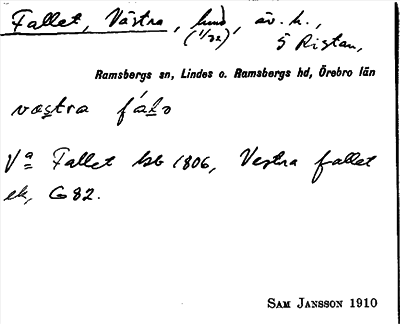 Fallet, Västra, hmd, äv. h.,
(1/32) S Ristan,
Ramsbergs sn, Lindes o. Ramsbergs hd, Örebro län
væstra falə
Va Fallet hb 1806, Vestra fallet
ek, G 82.
SAM JANSSON 1910